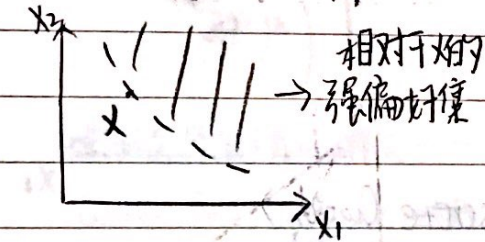 X₂
相对于X的
→强偏好集
X
X₁